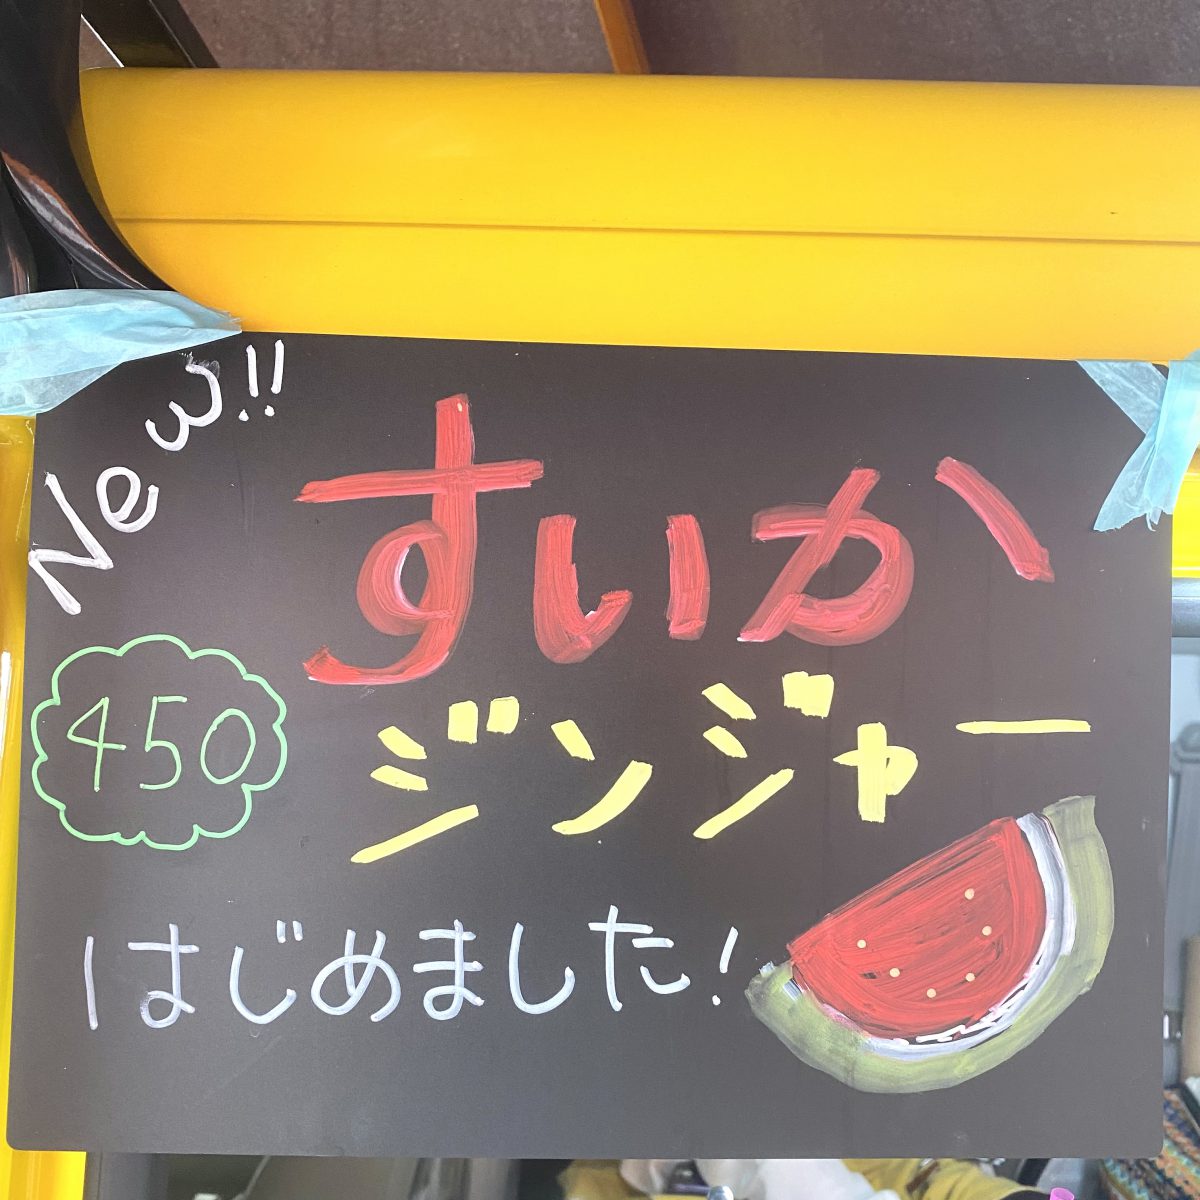 New!!
すいか
ジンジャー
450
はじめました!